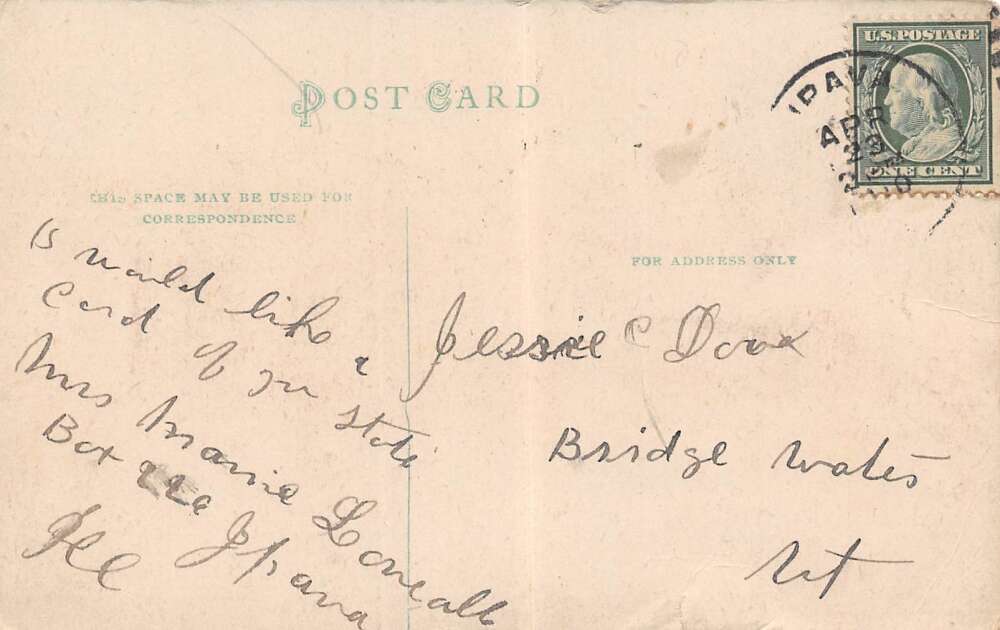 POST CARD
U.S. POSTAGE
ONE CENT
IPAVA
APR
29
THIS SPACE MAY BE USED FOR
CORRESPONDENCE
FOR ADDRESS ONLY
would like a
Card of your state
Mrs Mamie
Box Ipava
Ill
Jessie C Dow
Bridge water
Vt